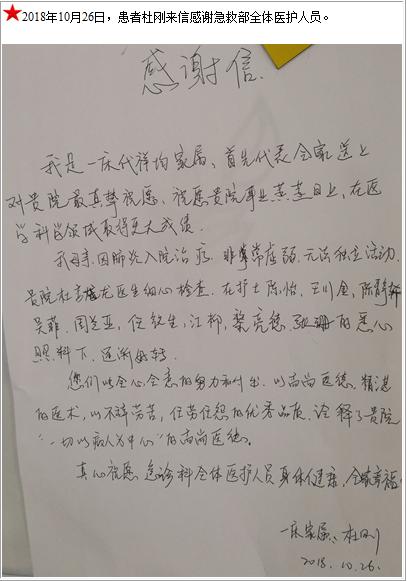 2018年10月26日，患者杜刚来信感谢急救部全体医护人员。
感谢信
我是一床代祥均家属、首先代表全家送上
对贵院最真挚祝愿、祝愿贵院事业蒸蒸日上，在医
学科学领域取得更大成绩.
我母亲因肺炎入院治疗.非常虚弱.无法独立活动.
贵院杜龙医生细心检查.在护士陈怡、王川金,陈静
吴菲,周兰亚,任红生,江柳,黎亮德,张珊的悉心
照料下.逐渐好转.
您们以全心全意的努力和付出.以高尚医德.精湛
的医术,以不辞劳苦,任劳任怨的优秀品质.诠释了贵院
“一切以病人为中心”的高尚医德。
真心祝愿急诊科全体医护人员身体健康,全家幸福!
一床家属:杜刚
2018.10.26.